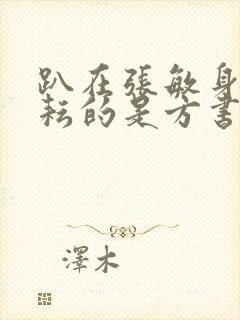 趴在張敏身
耘的是方書
澤木